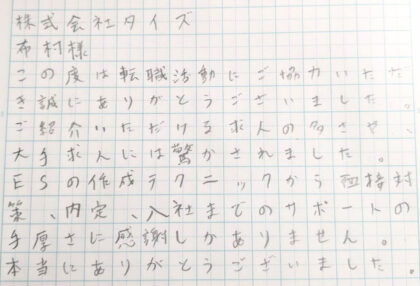 株式会社タイズ
布村様
この度は転職活動にご協力いただ
き誠にありがとうございました。
ご紹介いただける求人の多さや、
大手求人には驚かされました。
ESの作成テクニックから面接対
策、内定、入社までのサポートの
手厚さに感謝しかありません。
本当にありがとうございました。